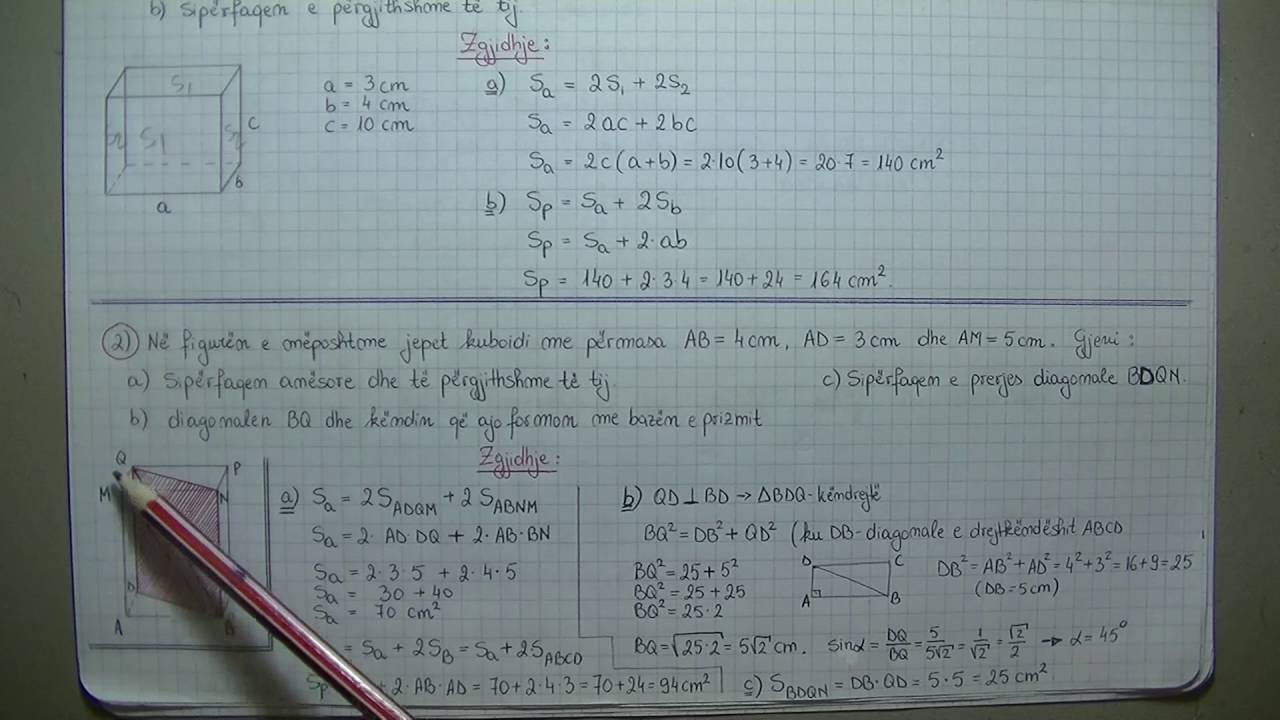 b) Sipërfaqen e përgjithshme të tij.
Zgjidhje:
S1
S1
S2
S2
c
b
a
a = 3 cm
b = 4 cm
c = 10 cm
a) Sa = 2S1 + 2S2
Sa = 2ac + 2bc
Sa = 2c(a+b) = 2·10(3+4) = 20·7 = 140 cm²
b) Sp = Sa + 2Sb
Sp = Sa + 2·ab
Sp = 140 + 2·3·4 = 140+24 = 164 cm².
2) Në figurën e mëposhtme jepet kuboidi me përmasa AB = 4 cm, AD = 3 cm dhe AM = 5 cm. Gjeni:
a) Sipërfaqen anësore dhe të përgjithshme të tij.
c) Sipërfaqen e prerjes diagonale BDQN.
b) diagonalen BQ dhe këndin që ajo formon me bazën e prizmit
Zgjidhje:
Q
P
M
N
D
A
B
a) Sa = 2SADQM + 2SABNM
Sa = 2·AD·DQ + 2·AB·BN
Sa = 2·3·5 + 2·4·5
Sa = 30 + 40
Sa = 70 cm²
= Sa + 2SB = Sa + 2SABCD
Sp + 2·AB·AD = 70+2·4·3 = 70+24 = 94 cm²
b) QD ⊥ BD → ΔBDQ-këndrejtë
BQ² = DB² + QD² (ku DB-diagonale e drejtkëndëshit ABCD
BQ² = 25 + 5²
BQ² = 25 + 25
BQ² = 25·2
D
C
A
B
DB² = AB² + AD² = 4² + 3² = 16 + 9 = 25
(DB = 5 cm)
BQ = √25·2 = 5√2 cm. sinα = DQ/BQ = 5/5√2 = 1/√2 = √2/2 → α = 45°
c) SBDQN = DB·QD = 5·5 = 25 cm²